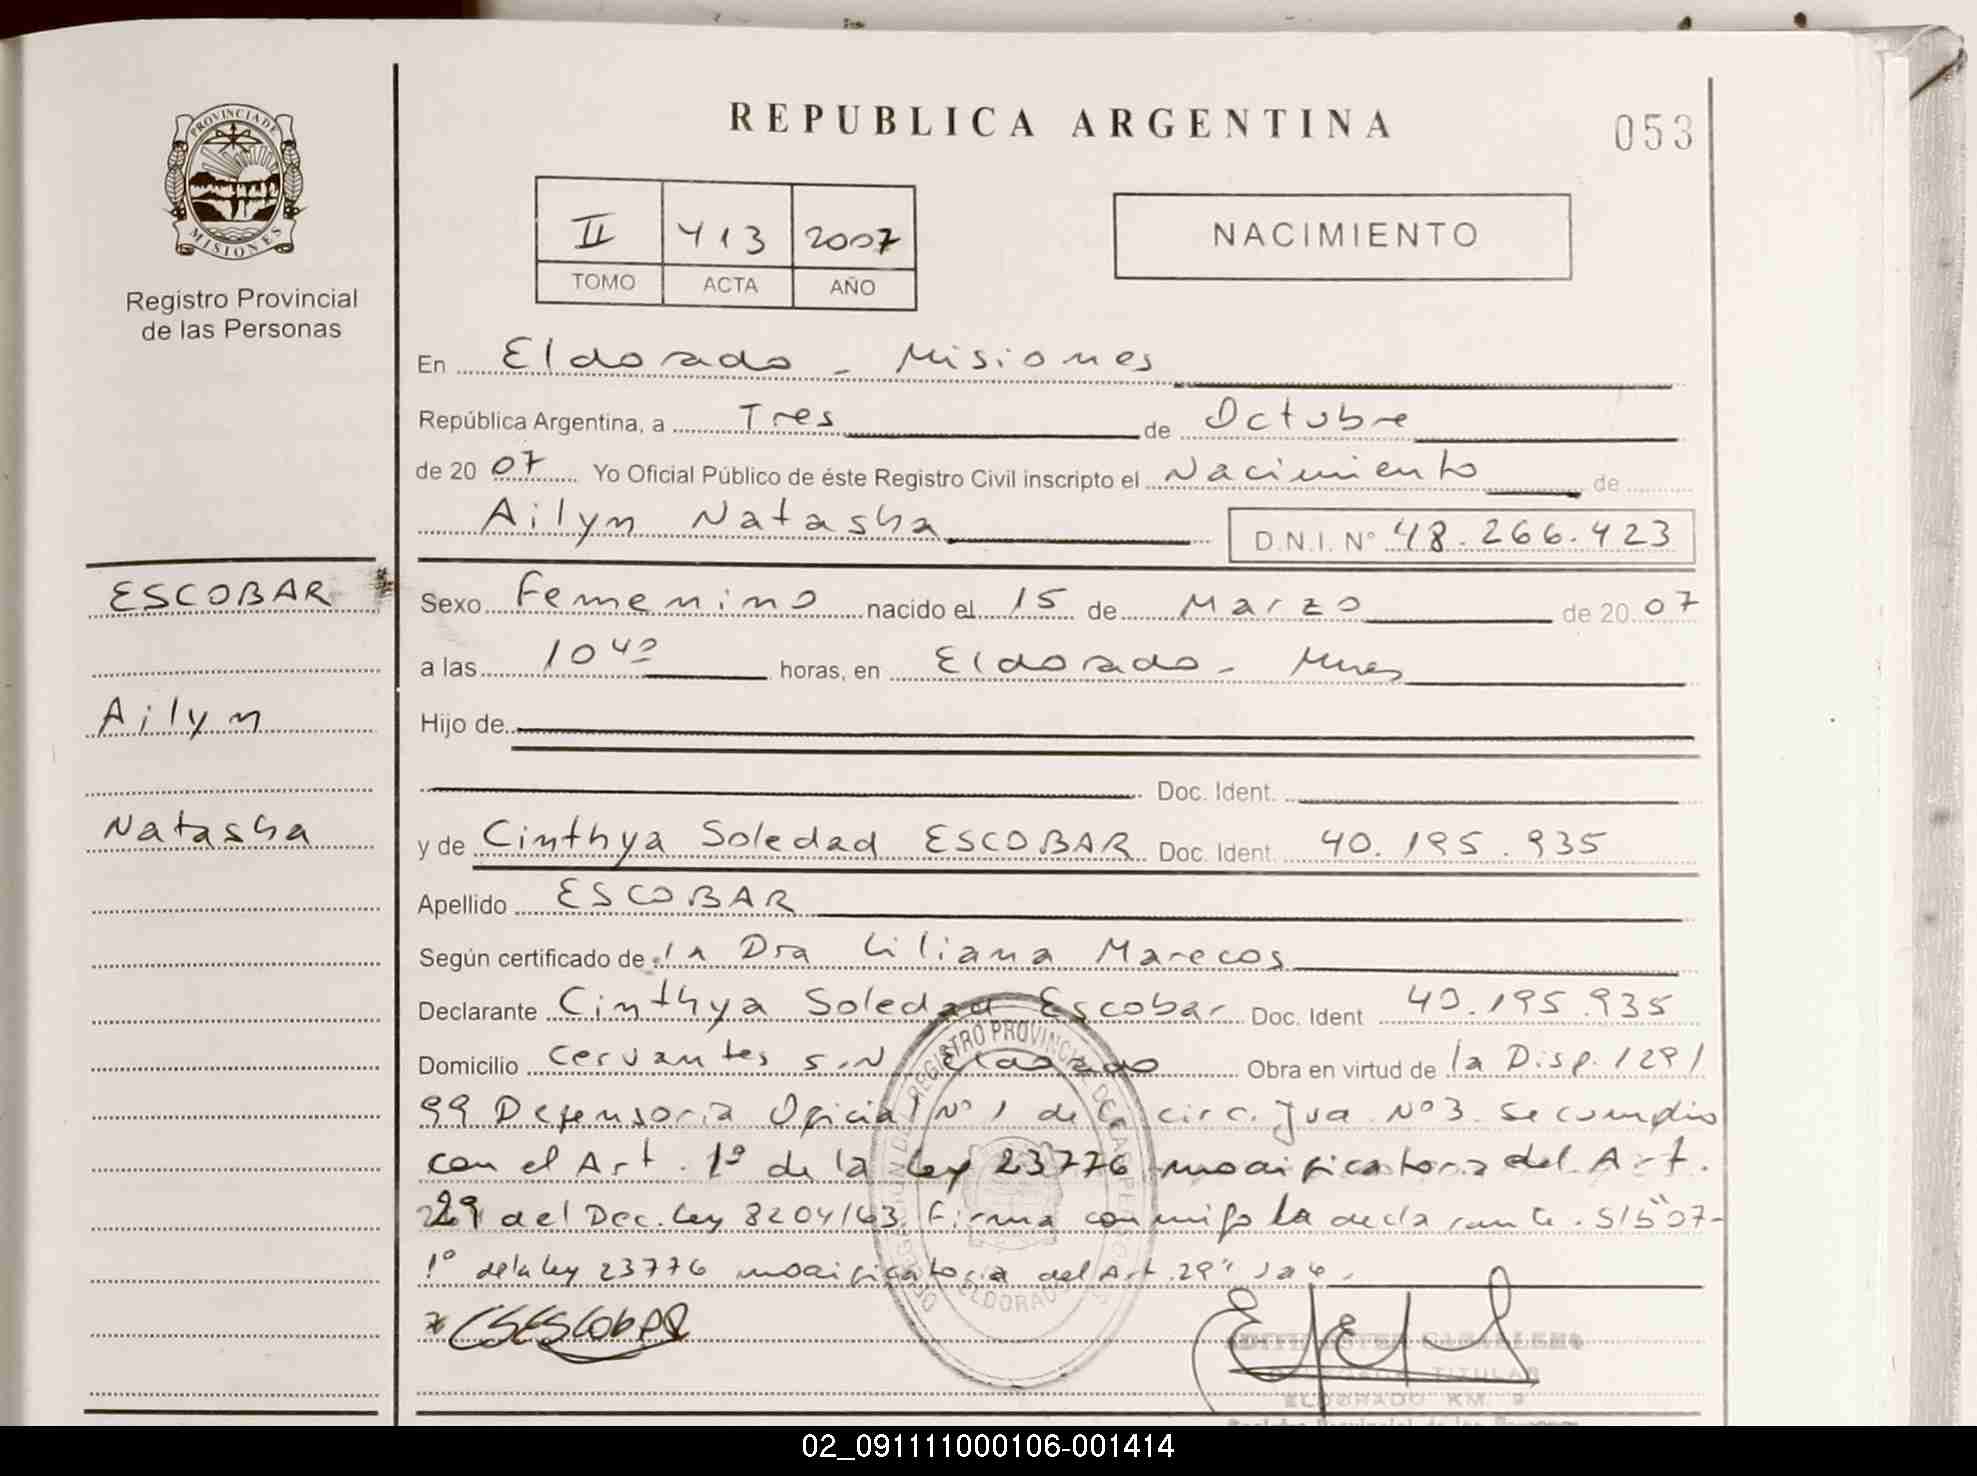 PROVINCIA DE
MISIONES
Registro Provincial
de las Personas
REPUBLICA ARGENTINA
053
II 413 2007
TOMO ACTA AÑO
NACIMIENTO
En Eldorado - Misiones
República Argentina, a Tres de Octubre
de 20 07 Yo Oficial Público de éste Registro Civil inscripto el Nacimiento de
Ailyn Natasha D.N.I. N° 48.266.423
ESCOBAR
Ailyn
Natasha
Sexo Femenino nacido el 15 de Marzo de 20 07
a las 10 40 horas, en Eldorado - Mnes
Hijo de
Doc. Ident.
y de Cinthya Soledad ESCOBAR Doc. Ident. 40.195.935
Apellido ESCOBAR
Según certificado de la Dra Liliana Marecos
Declarante Cinthya Soledad Escobar Doc. Ident 40.195.935
Domicilio Cervantes S.N Eldorado Obra en virtud de la Disp. 129/
99 Defensoria Oficial N° 1 de la circ. Jua. N° 3 se cumplio
con el Art. 1° de la Ley 23776 modificatoria del Art.
29 del Dec. Ley 8204/63. Firma conmigo la declarante. S/b 07-
1° de la ley 23776 modificatoria del Art. 29" Vale.
CSEscobar
TITULAR
ELDORADO KM. 9
Registro Provincial de las Personas
02_091111000106-001414